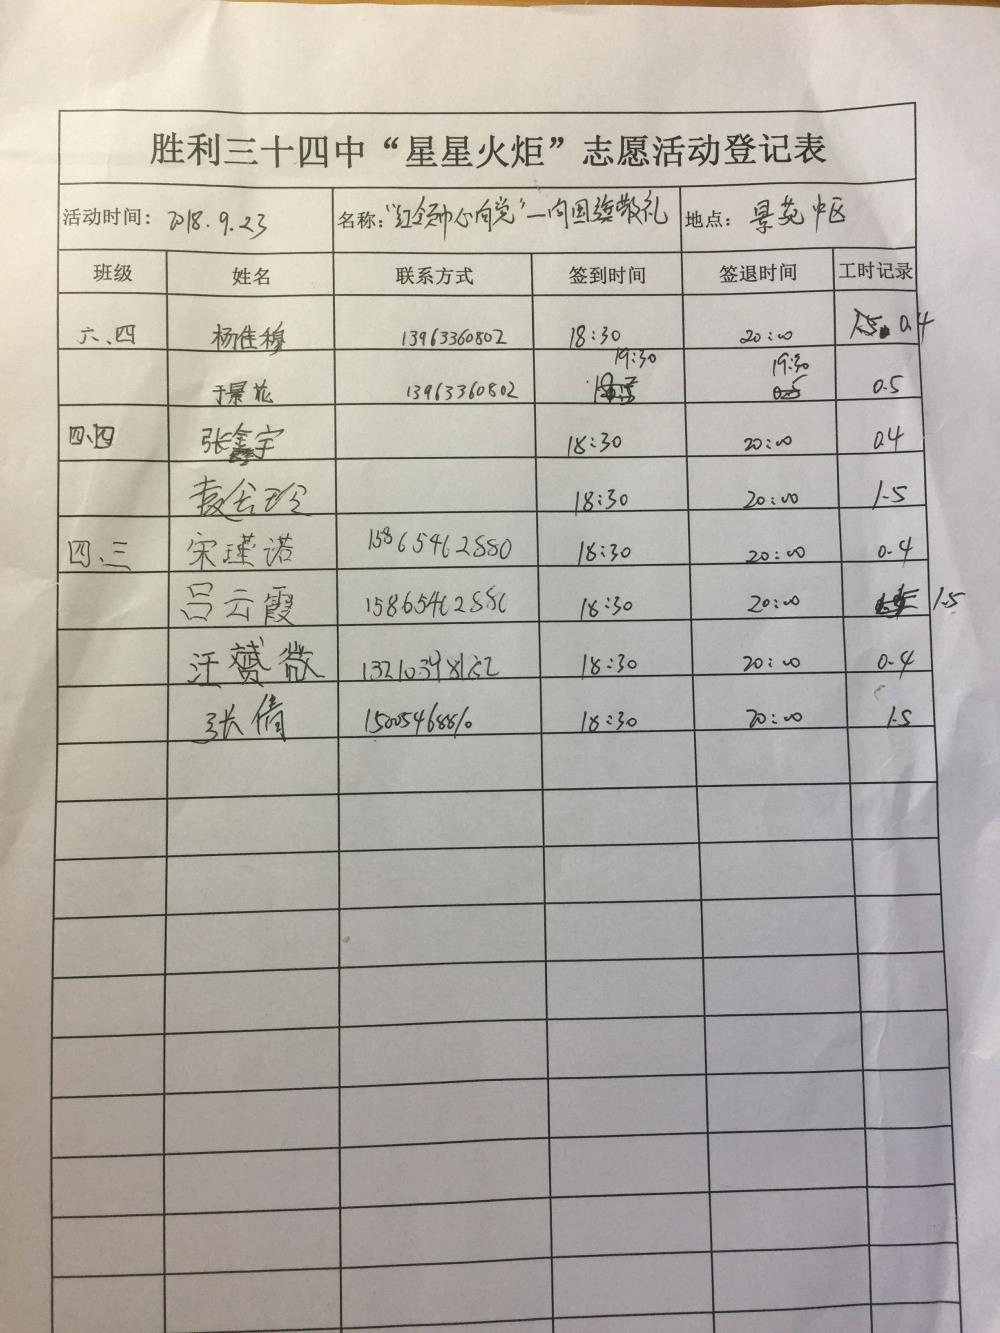 胜利三十四中“星星火炬”志愿活动登记表
活动时间：2018.9.23 名称：“红领巾心向党”—向国旗敬礼 地点：景苑中区
班级 姓名 联系方式 签到时间 签退时间 工时记录
六、四 杨佳穆 13963360802 18:30 20:00 0.4
于景花 13963360802 19:30 19:30 0.5
四、四 张鑫宇 18:30 20:00 0.4
18:30 20:00 1.5
四、三 宋瑾诺 15865462880 18:30 20:00 0.4
吕云霞 15865462880 18:30 20:00 1.5
汪赟薇 18:30 20:00 0.4
张倩 18:30 20:00 1.5